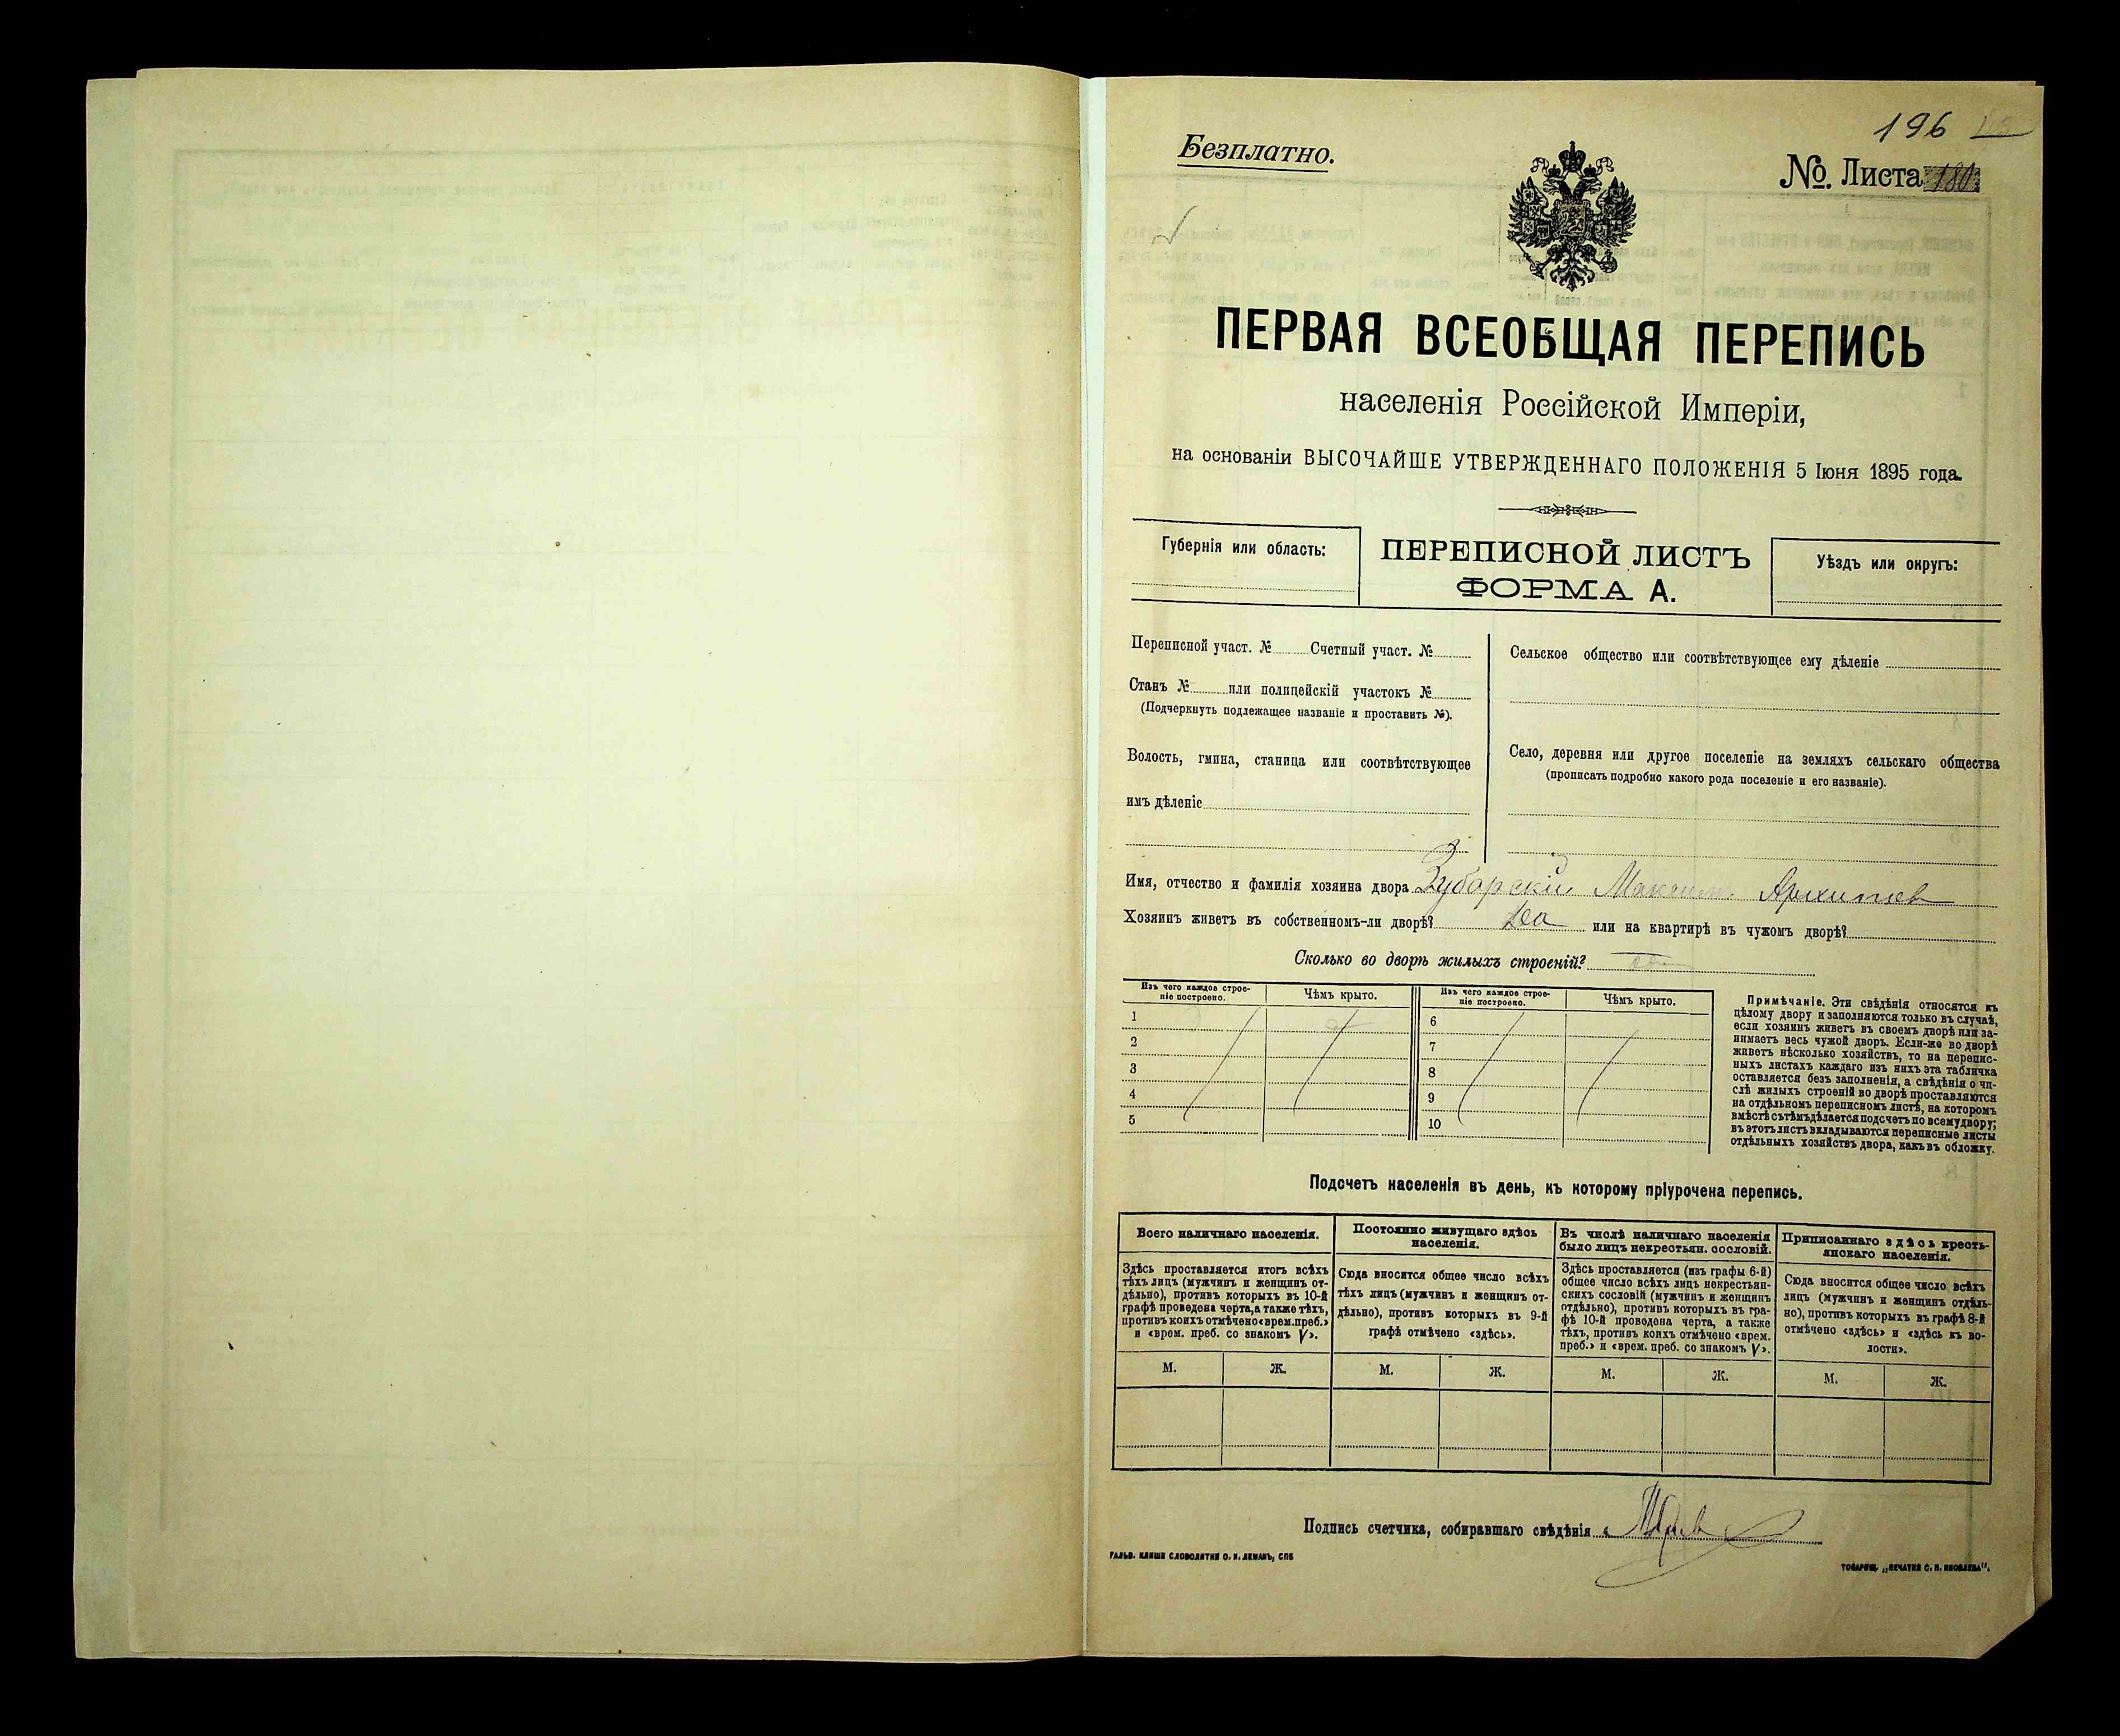 196
Безплатно.
№. Листа 180
ПЕРВАЯ ВСЕОБЩАЯ ПЕРЕПИСЬ
населенія Россійской Имперіи,
на основаніи ВЫСОЧАЙШЕ УТВЕРЖДЕННАГО ПОЛОЖЕНІЯ 5 Іюня 1895 года.
Губернія или область:
ПЕРЕПИСНОЙ ЛИСТЪ
ФОРМА А.
Уѣздъ или округъ:
Переписной участ. № Счетный участ. №
Станъ № или полицейскій участокъ №
(Подчеркнуть подлежащее названіе и проставить №).
Волость, гмина, станица или соотвѣтствующее
имъ дѣленіе
Сельское общество или соотвѣтствующее ему дѣленіе
Село, деревня или другое поселеніе на земляхъ сельскаго общества
(прописать подробно какого рода поселеніе и его названіе).
Имя, отчество и фамилія хозяина двора Зубарскій Максим. Архипов
Хозяинъ живетъ въ собственномъ-ли дворѣ? Да или на квартирѣ въ чужомъ дворѣ?
Сколько во дворѣ жилыхъ строеній?
Изъ чего каждое строе-
ніе построено.
Чѣмъ крыто.
Изъ чего каждое строе-
ніе построено.
Чѣмъ крыто.
1
2
3
4
5
6
7
8
9
10
Примѣчаніе. Эти свѣдѣнія относятся къ
цѣлому двору и заполняются только въ случаѣ,
если хозяинъ живетъ въ своемъ дворѣ или за-
нимаетъ весь чужой дворъ. Если-же во дворѣ
живетъ нѣсколько хозяйствъ, то на перепис-
ныхъ листахъ каждаго изъ нихъ эта табличка
оставляется безъ заполненія, а свѣдѣнія о чи-
слѣ жилыхъ строеній во дворѣ проставляются
на отдѣльномъ переписномъ листѣ, на которомъ
вмѣстѣ съ тѣмъ дѣлается подсчетъ по всему двору;
въ этотъ листъ вкладываются переписные листы
отдѣльныхъ хозяйствъ двора, какъ въ обложку.
Подсчетъ населенія въ день, къ которому пріурочена перепись.
Всего наличнаго населенія.
Здѣсь проставляется итогъ всѣхъ
тѣхъ лицъ (мужчинъ и женщинъ от-
дѣльно), противъ которыхъ въ 10-й
графѣ проведена черта, а также тѣхъ,
противъ коихъ отмѣчено «врем. преб.»
и «врем. преб. со знакомъ V».
Постоянно живущаго здѣсь
населенія.
Сюда вносится общее число всѣхъ
тѣхъ лицъ (мужчинъ и женщинъ от-
дѣльно), противъ которыхъ въ 9-й
графѣ отмѣчено «здѣсь».
Въ числѣ наличнаго населенія
было лицъ некрестьян. сословій.
Здѣсь проставляется (изъ графы 6-й)
общее число всѣхъ лицъ некрестьян-
скихъ сословій (мужчинъ и женщинъ
отдѣльно), противъ которыхъ въ гра-
фѣ 10-й проведена черта, а также
тѣхъ, противъ коихъ отмѣчено «врем.
преб.» и «врем. преб. со знакомъ V».
Приписаннаго здѣсь кресть-
янскаго населенія.
Сюда вносится общее число всѣхъ
лицъ (мужчинъ и женщинъ отдѣль-
но), противъ которыхъ въ графѣ 8-й
отмѣчено «здѣсь» и «здѣсь къ во-
лости».
М. Ж. М. Ж. М. Ж. М. Ж.
Подпись счетчика, собиравшаго свѣдѣнія
ГАЛЬВ. КЛИШЕ СЛОВОЛИТНИ О. И. ЛЕМАНЪ, СПБ
ТОВАРИЩ. „ПЕЧАТНЯ С. П. ЯКОВЛЕВА".